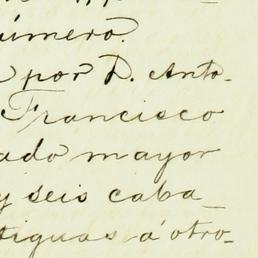 número.
por D. Anto-
Francisco
ado mayor
y seis caba_
tiguas á otro-